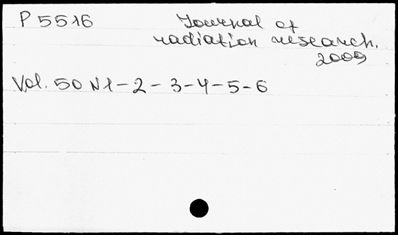 P 5516
Journal of
radiation research.
2009
Vol. 50 N 1-2-3-4-5-6